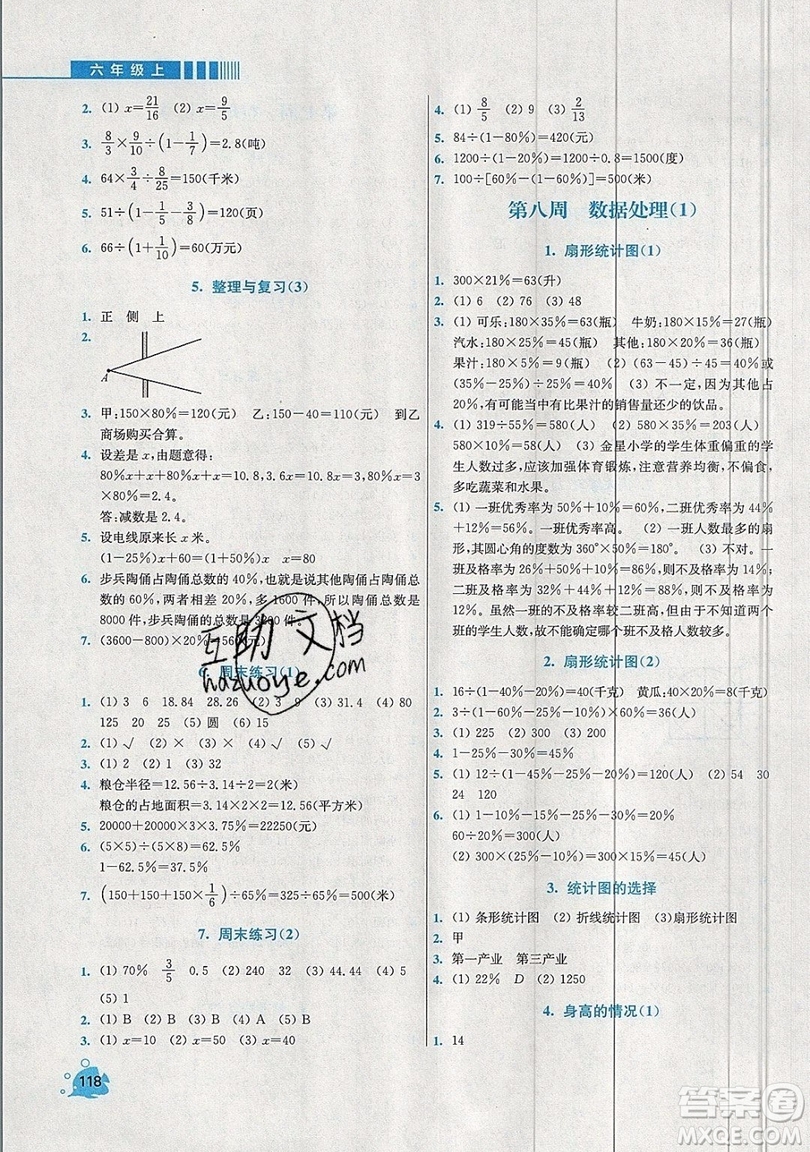 六年级上
2. (1) x=21/16 (2) x=9/5
3. 8/3×9/10÷(1-1/7)=2.8(吨)
4. 64×3/4÷8/25=150(千米)
5. 51÷(1-1/5-3/8)=120(页)
6. 66÷(1+1/10)=60(万元)
5. 整理与复习(3)
1. 正 侧 上
2.
A
3. 甲:150×80%=120(元) 乙:150-40=110(元) 到乙
商场购买合算。
4. 设差是x,由题意得:
80%x+x+80%x=10.8+3.6x=10.8x=3x=3
×80%=2.4。
答:减数是2.4。
5. 设电线原来长x米。
(1-25%)x+60=(1+50%)x x=80
6. 步兵陶俑占陶俑总数的40%,也就是说其他陶俑占陶俑总
数的60%,两者相差20%,多1600件,所以陶俑总数是
8000件,步兵陶俑的总数是3200件。
7. (3600-800)×20%=560(元)
6. 周末练习(1)
1. (1) 3 6 18.84 28.26 (2) 3 (3) 31.4 (4) 80
125 20 25 (5) 圆 (6) 15
2. (1) √ (2) × (3) × (4) √
3. (1) 3 (2) 1 (3) 2 (4) 3
4. 粮仓半径=12.56÷3.14÷2=2(米)
粮仓的占地面积=3.14×2×2=12.56(平方米)
5. 20000+20000×3×3.75%=22250(元)
6. (5×5)÷(5×8)=62.5%
1-62.5%=37.5%
7. (150+150+150×1/6)÷65%=325÷65%=500(米)
7. 周末练习(2)
1. (1) 70% 3/5 0.5 (2) 240 32 (3) 15 44 (4) 5
(5) 1
2. (1) B (2) B (3) C (4) B
3. (1) x=10 (2) x=50 (3) x=20 (4) x=40
118
4. (1) 8/5 (2) 9 (3) 2/13
5. 84÷(1-80%)=420(元)
6. 1200÷(1-20%)=1200÷0.8=1500(度)
7. 100÷[60%-(1-60%)]=500(米)
第八周 数据处理(1)
1. 扇形统计图(1)
1. 300×21%=63(升)
2. (1) 6 (2) 76 (3) 48
3. (1) 可乐:180×35%=63(瓶) 牛奶:180×15%=27(瓶)
汽水:180×25%=45(瓶) 其他:180×20%=36(瓶)
果汁:180×5%=9(瓶) (2) (63-45)÷45=40%或
(35%-25%)÷25%=40% (3) 不一定,因为其他占
20%,有可能当中有比果汁的销售量还少的饮品。
4. (1) 319÷55%=580(人) (2) 580×35%=203(人)
580×10%=58(人) (3) 金星小学的学生体重偏重的学
生人数过多,应该加强体育锻炼,注意营养均衡,不偏食,
多吃蔬菜和水果。
5. (1) 一班优秀率为50%+10%=60%,二班优秀率为44%
+12%=56%。一班优秀率高。 (2) 一班人数最多的扇
形,其圆心角的度数为360°×50%=180°。 (3) 不对。一
班及格率为24%+50%+10%=84%,不及格率为14%;
二班及格率为32%+44%+12%=88%,不及格率为
12%。虽然一班的不及格率较二班高,但由于不知道两个
班的学生人数,故不能确定哪个班不及格人数较多。
2. 扇形统计图(2)
1. 16÷(1-40%-20%)=40(千克) 黄瓜:40×40%=16(千克)
2. 3÷(1-60%-35%)=60(人)
3. (1) 225 (2) 300 (3) 200
4. 1-25%-30%=45%
5. (1) 12÷(1-45%-20%-25%)=120(人) (2) 54 30
24 120
6. (1) 1-10%-15%-20%-30%=25%
60÷20%=300(人)
(2) 300×(25%+30%+15%)=210(人)
3. 统计图的选择
1. (1) 条形统计图 (2) 折线统计图 (3)扇形统计图
2. 甲
3. 第一产业 第三产业
4. (1) 22% D (2) 1250
4. 身高的情况(1)
1. 14
互助文档
hazuoye.com
答案圈
MXQE.COM